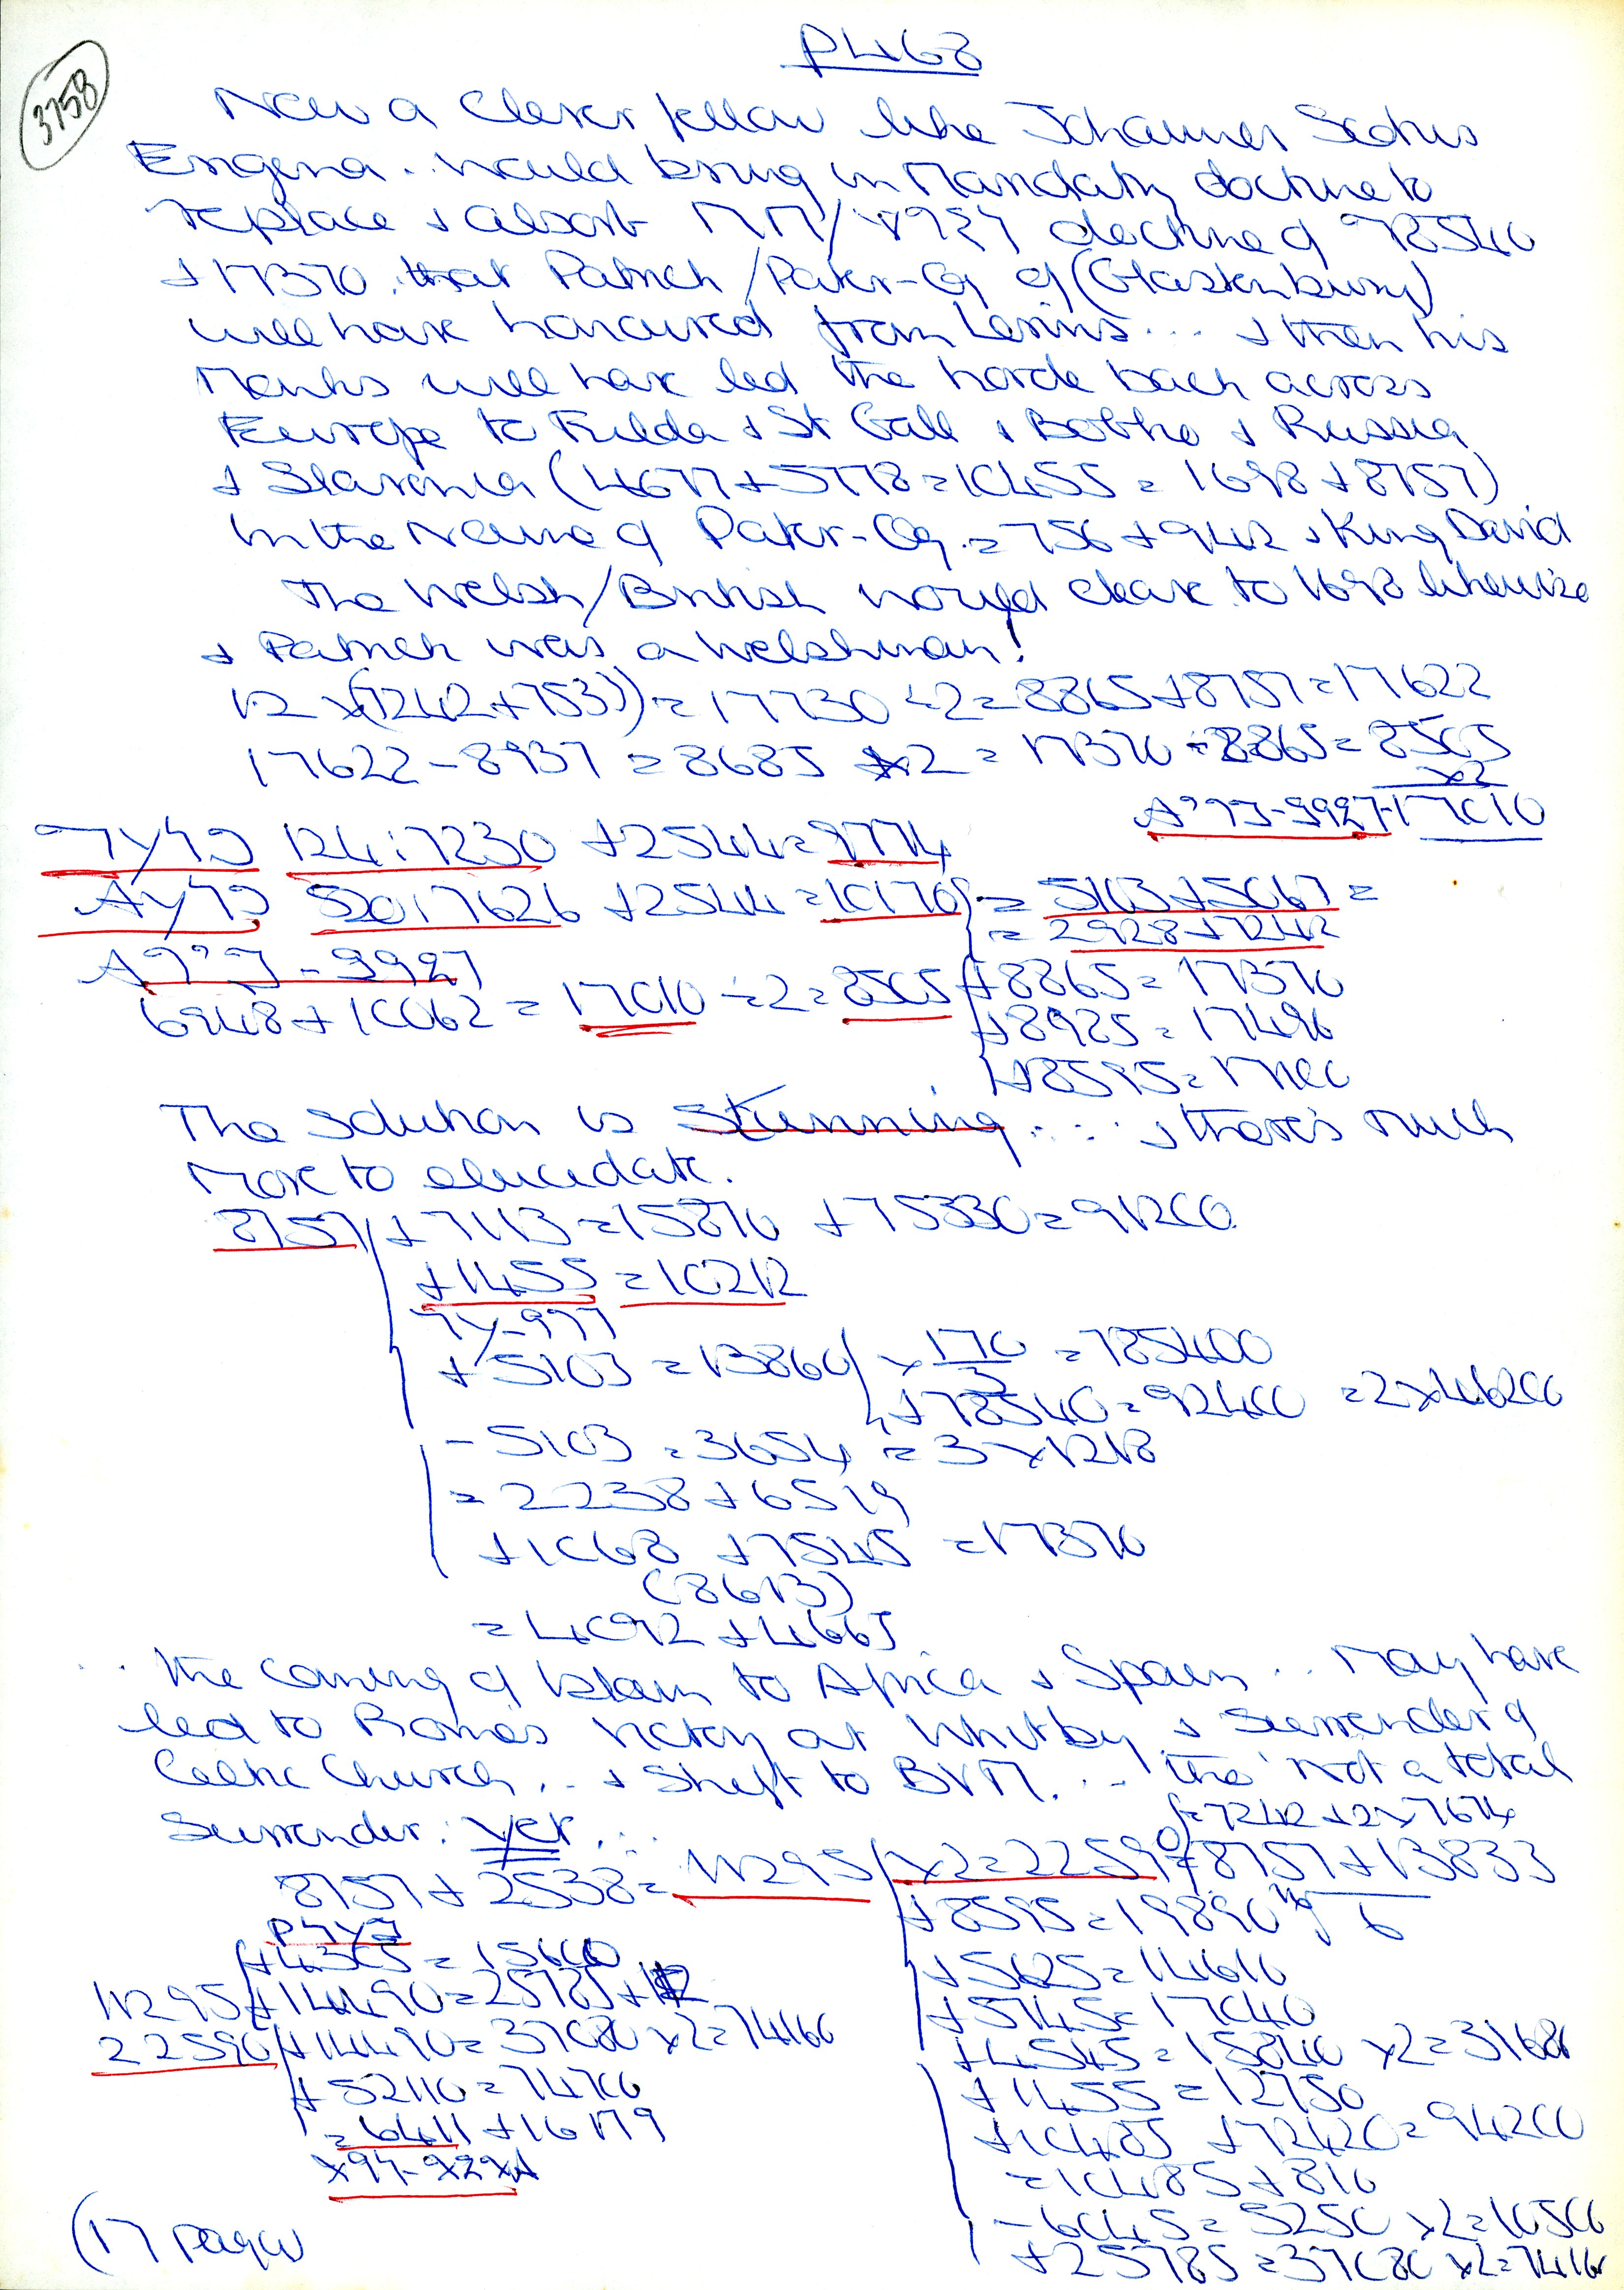 P468
3758
Now a clever fellow like Johannes Scotus
Erigena .. would bring in Mandatry doctrine to
replace + absorb MM/8937 doctrine of 78540
+ 17370. that Patrick/Pater-Og of (Glastonbury)
will have honoured from Lerins ... + then his
Monks will have led the horde back across
Europe to Fulda + St Gall + Bobbio + Russia
+ Slavonia (4677+5778=10455=1698+8757)
in the Name of Pater-Og. = 756+942 + King David
The Welsh/British would cleave to 1698 likewise
+ Patrick was a Welshman!
17730 ÷2=8865+8757=17622
17622-8937=8685 x2=17370-8865=8505
x2
17010
124:7230 +2544=9774
520:7626 +2544=10170 = 5103+5067=
= 2928+7242
6948+10062=17010 ÷2=8505 +8865=17370
+8925=17496
+8595=17100
The solution is stunning .... + there's much
more to elucidate.
8757 +7113=15870 +75330=91200
+1455=10212
+5103=13860 x 170/3 =785400
+78540=92400 =2x46200
-5103=3654=3x1218
=2238+6519
+1068 +7545=17370
(8613)
=4092+4665
.. the coming of Islam to Africa + Spain .. may have
led to Rome's victory at Whitby + surrender of
Celtic Church .. + shift to BVM. .. tho' not a total
surrender. yet ...
=7242+2x7674
8757+2538=11295 x2=22590 =8757+13833
+8595=19890
6
+4305=15600
11295 +14490=25785
22590 +14490=37080 x2=74160
+52110=74700
=6411+16179
+5745=17040
+4545=15840 x2=31680
+1455=12750
+10485 +72420=94200
=10485+810
-6045=5250 x2=10500
+25785=37080 x2=74160
(17 pages